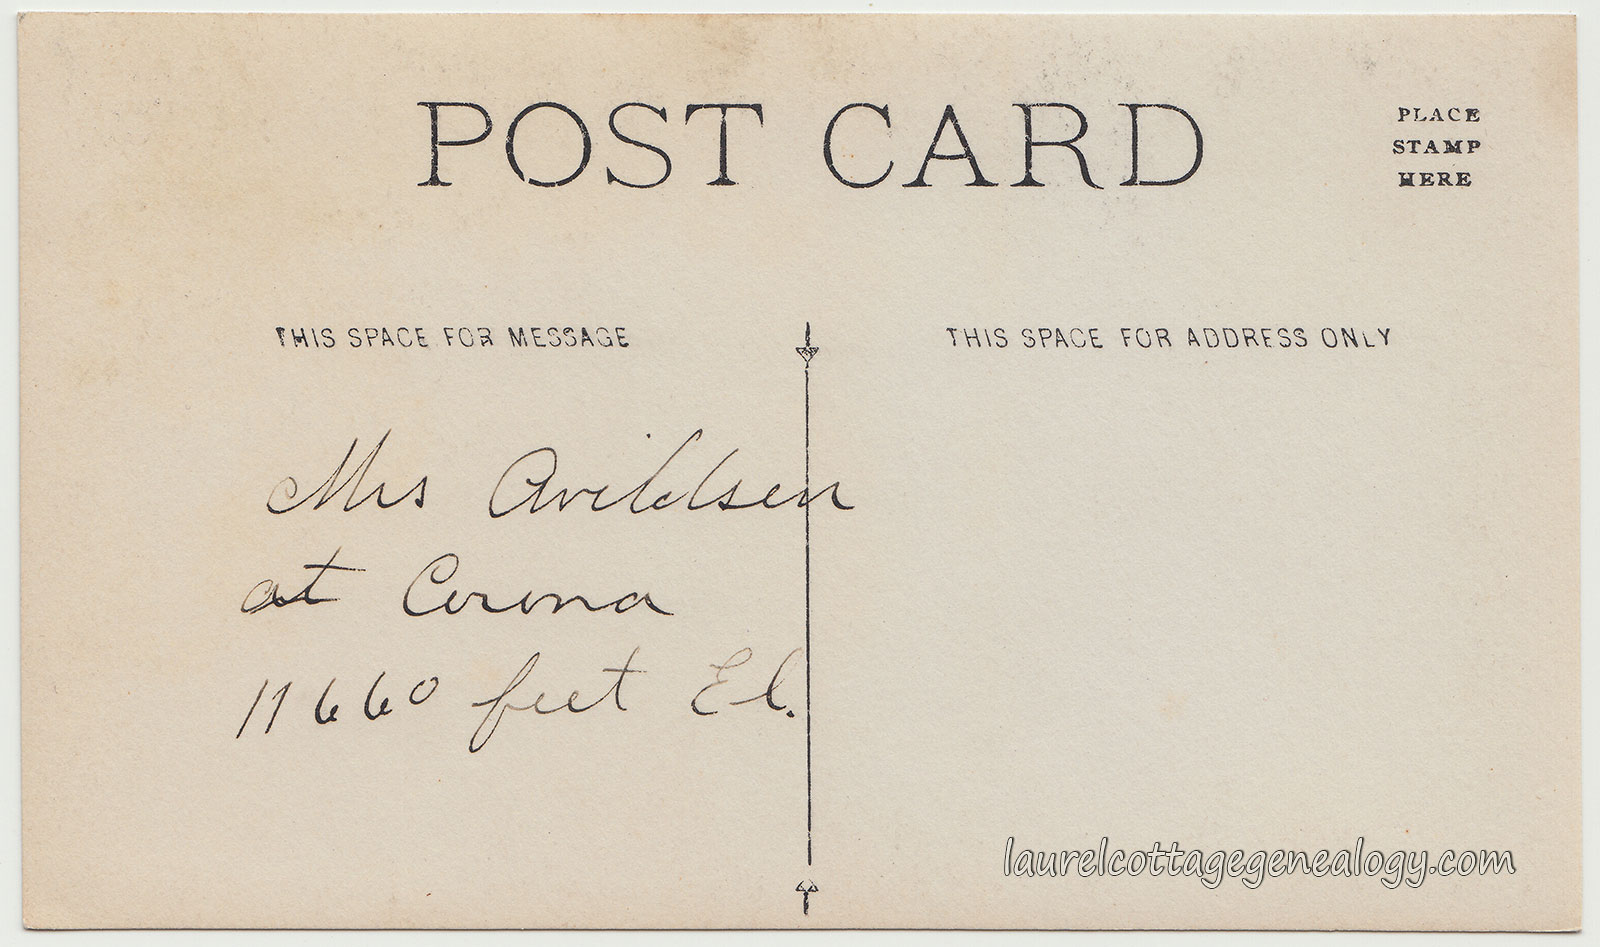 POST CARD
PLACE
STAMP
HERE
THIS SPACE FOR MESSAGE
THIS SPACE FOR ADDRESS ONLY
Mrs Avildsen
at Corona
11660 feet El.
laurelcottagegenealogy.com